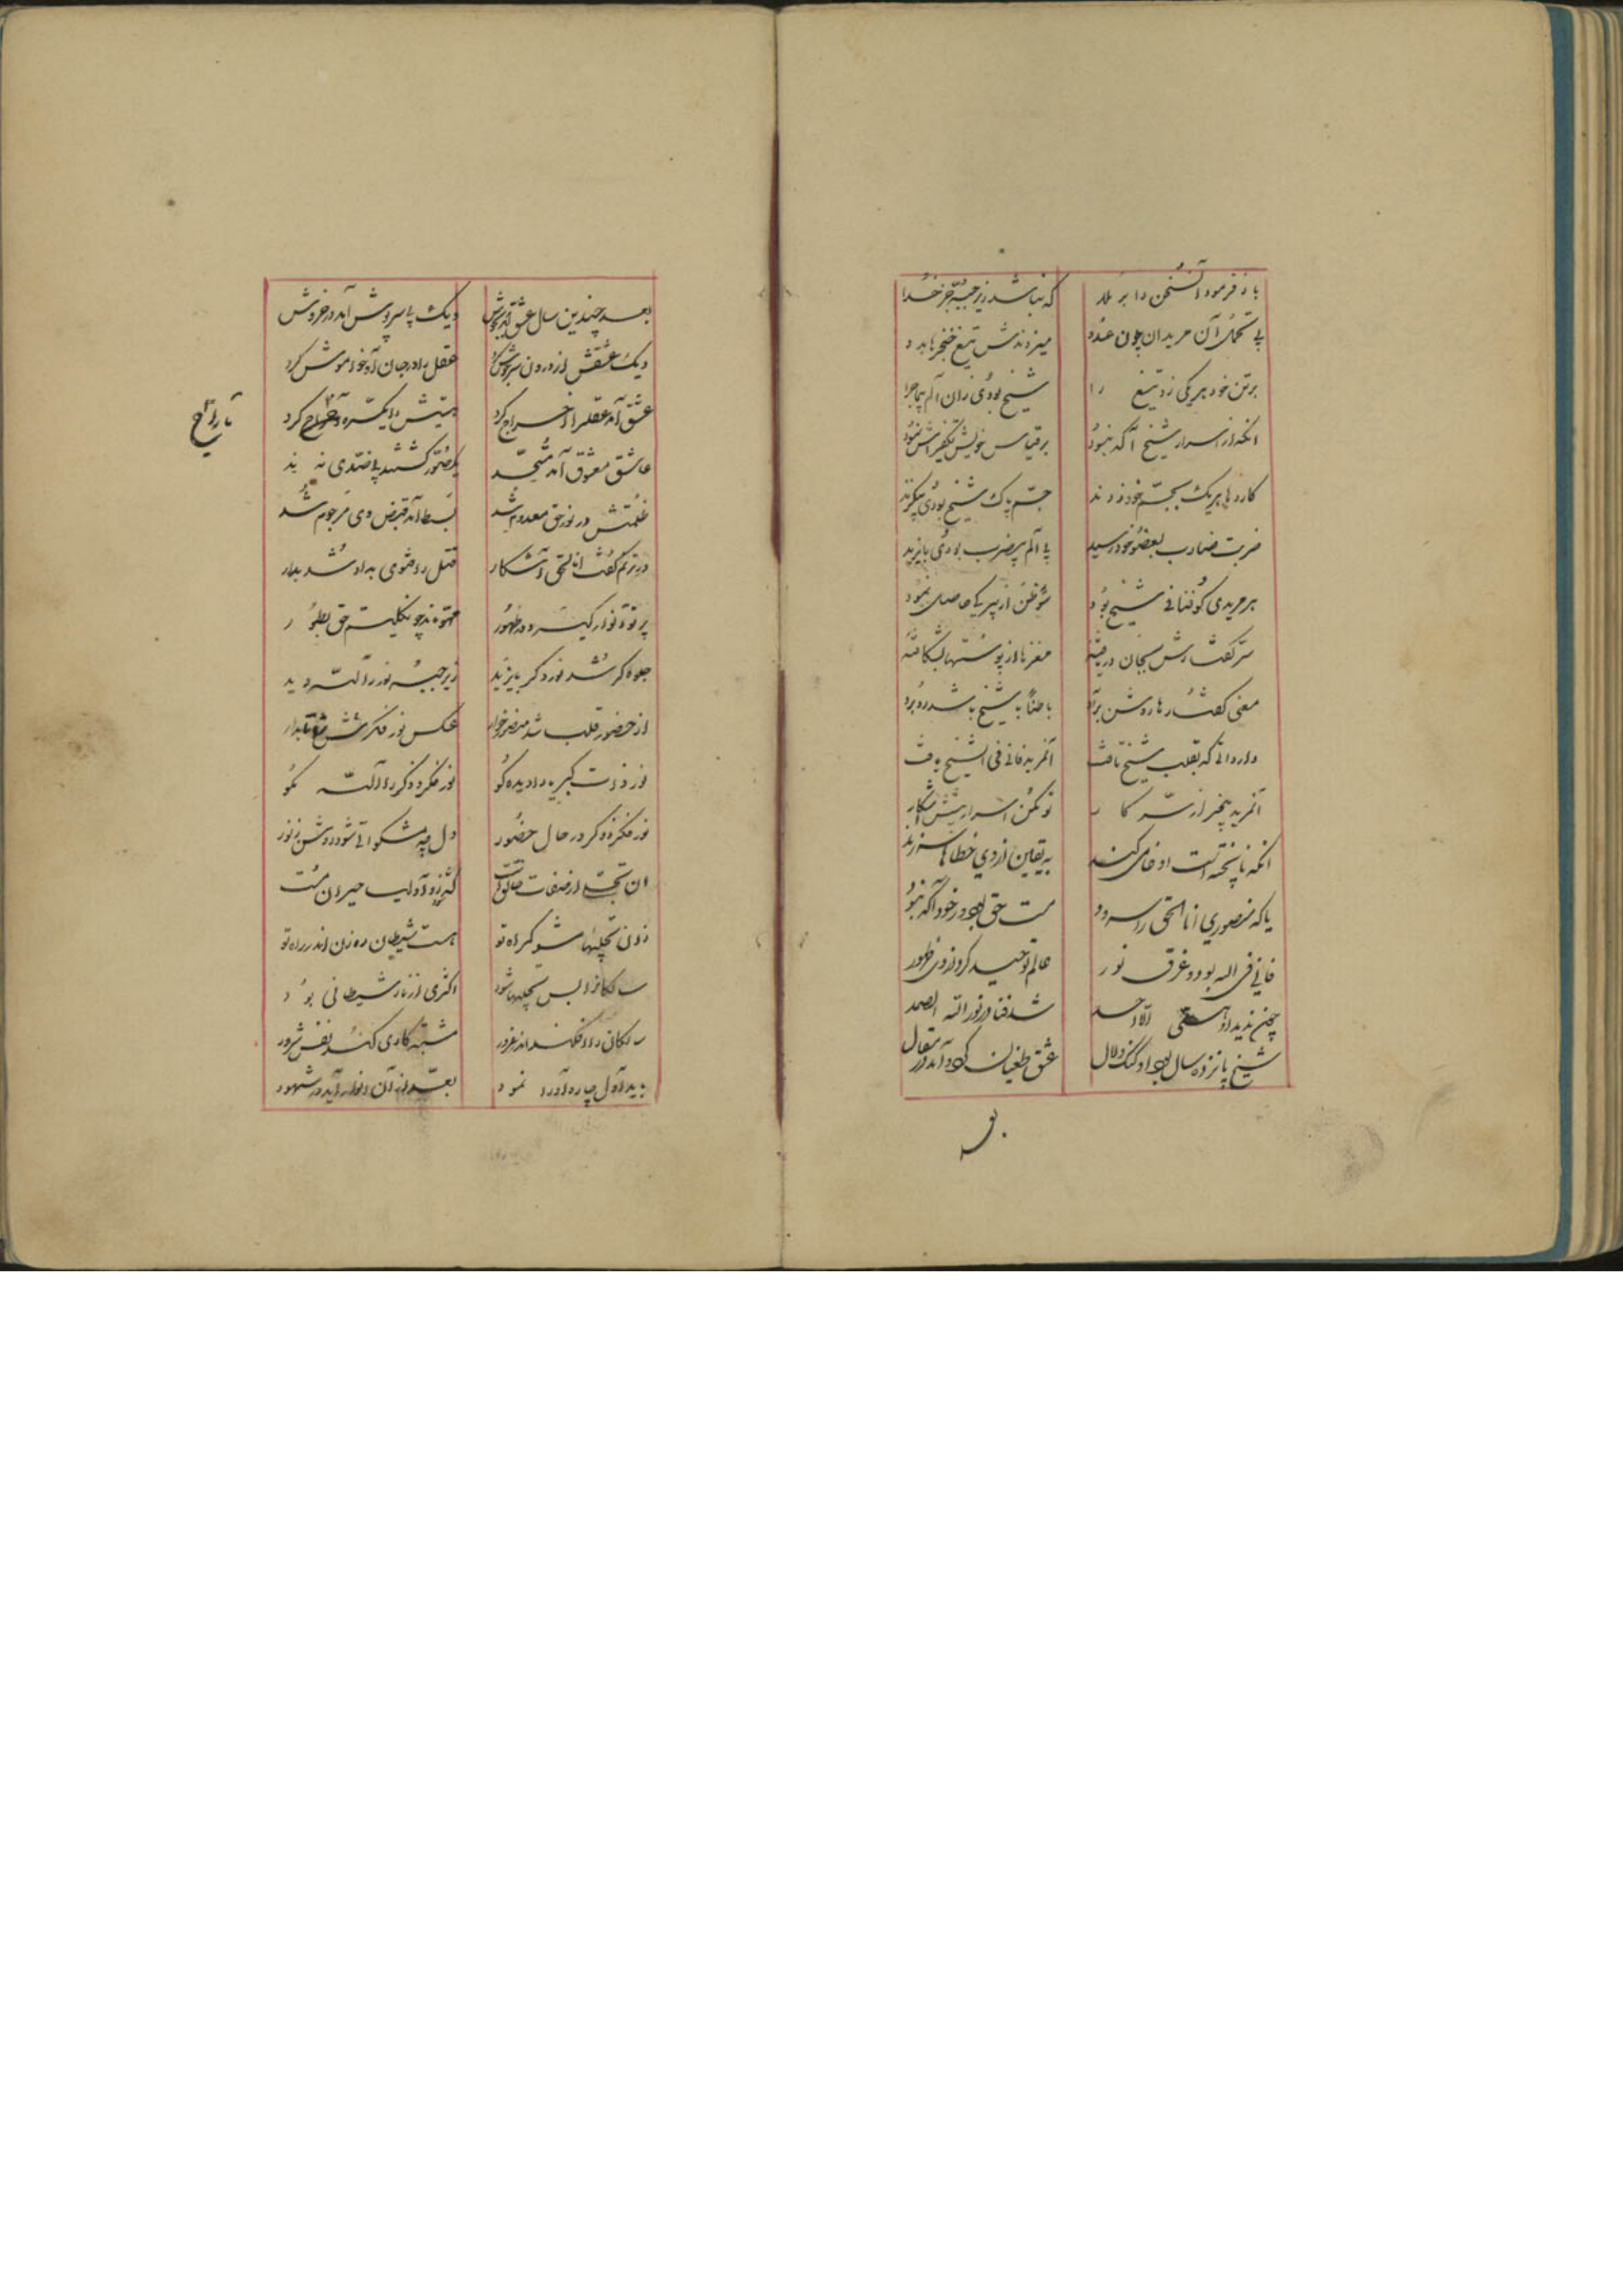 باز فرمود آن سخن را برملا که نباشد زیر جبه جز خدا
بی تحمل آن مریدان چون عدو میزدندش تیغ خنجرها بدو
برتن خود هر یکی زد تیغ را شیخ بودی زان الم بی ماجرا
انکه از اسرار شیخ آگه نبود بر قیاس خویش تکفیرش نمود
کاردها هریک بجسم خود زدند جسم پاک شیخ بودی بیگزند
ضربت ضارب بعضو خود رسید بی الم بیضرب بودی بایزید
هر مریدی کو فنا فی شیخ بود سؤ ظن از پیر کی حاصل نمود
سر گفتارش بجان دریافته مغزها از پوستها بشکافته
معنی گفتارها روشن برو باطنا با شیخ باشد روبرو
وارداتی که بقلب شیخ تافت آنمرید فانی فی الشیخ یافت
آنمرید بیخبر از سر کار تو مکن اسرار پیشش آشکار
انکه ناپخته است او خامی کند به یقین از وی خطاها سرزند
یا که منصوری انا الحق را سرود مست حق بود و ز خود آگه نبود
فانی فی الله بود و غرق نور عالم توحید کرد از وی ظهور
چون ندید او هستئی الا احد شد فنا در نور الله الصمد
شیخ پانزده سال بود او گنگ و لال عشق طغیان کرد و آمد در مقال
بعد چندین سال عشق آمد بجوش دیک با سرپوش آمد در خروش
دیک عشقش از درون سرپوش کرد عقل را در جان او خاموش کرد
عشق آمد عقل را اخراج کرد هستیش را یکسره تاراج کرد
تاراج
عاشق و معشوق آمد متحد یکصور گشتند بی ضدی نه ند
ظلمتش در نور حق معدوم شد بسط آمد قبض وی مرجوم شد
در ترنم گفت انا الحق آشکار قتل را فتوی به او شد بدار
پرتو انوار گیرد در ظهور محو ماند چونکه نیست حق بطور
جلوه گر شد نور ذکر بایزید زیر جبه نور را الله دید
از حضور قلب شد منصور خوار عکس نور فکر شد شمع تابدار
نور ذات کبریا را دیده کو نور فکر و ذکر را الله مگو
نور فکر و ذکر در حال حضور دل چه مشکواتی شود روشن ز نور
ان تجلی از صفات حالتست کثرتی زو اولیا حیران مست
زان تجلیها مشو گمراه تو هست شیطان رهزن اندر راه تو
سالکانرا بس تجلیها شود اکثری از نار شیطانی بود
سالکان را افکند اندر غرور مشتبه کاری کند نفس شرور
باید اول چاره او را نمود بعد از آن انوار آید در شهود